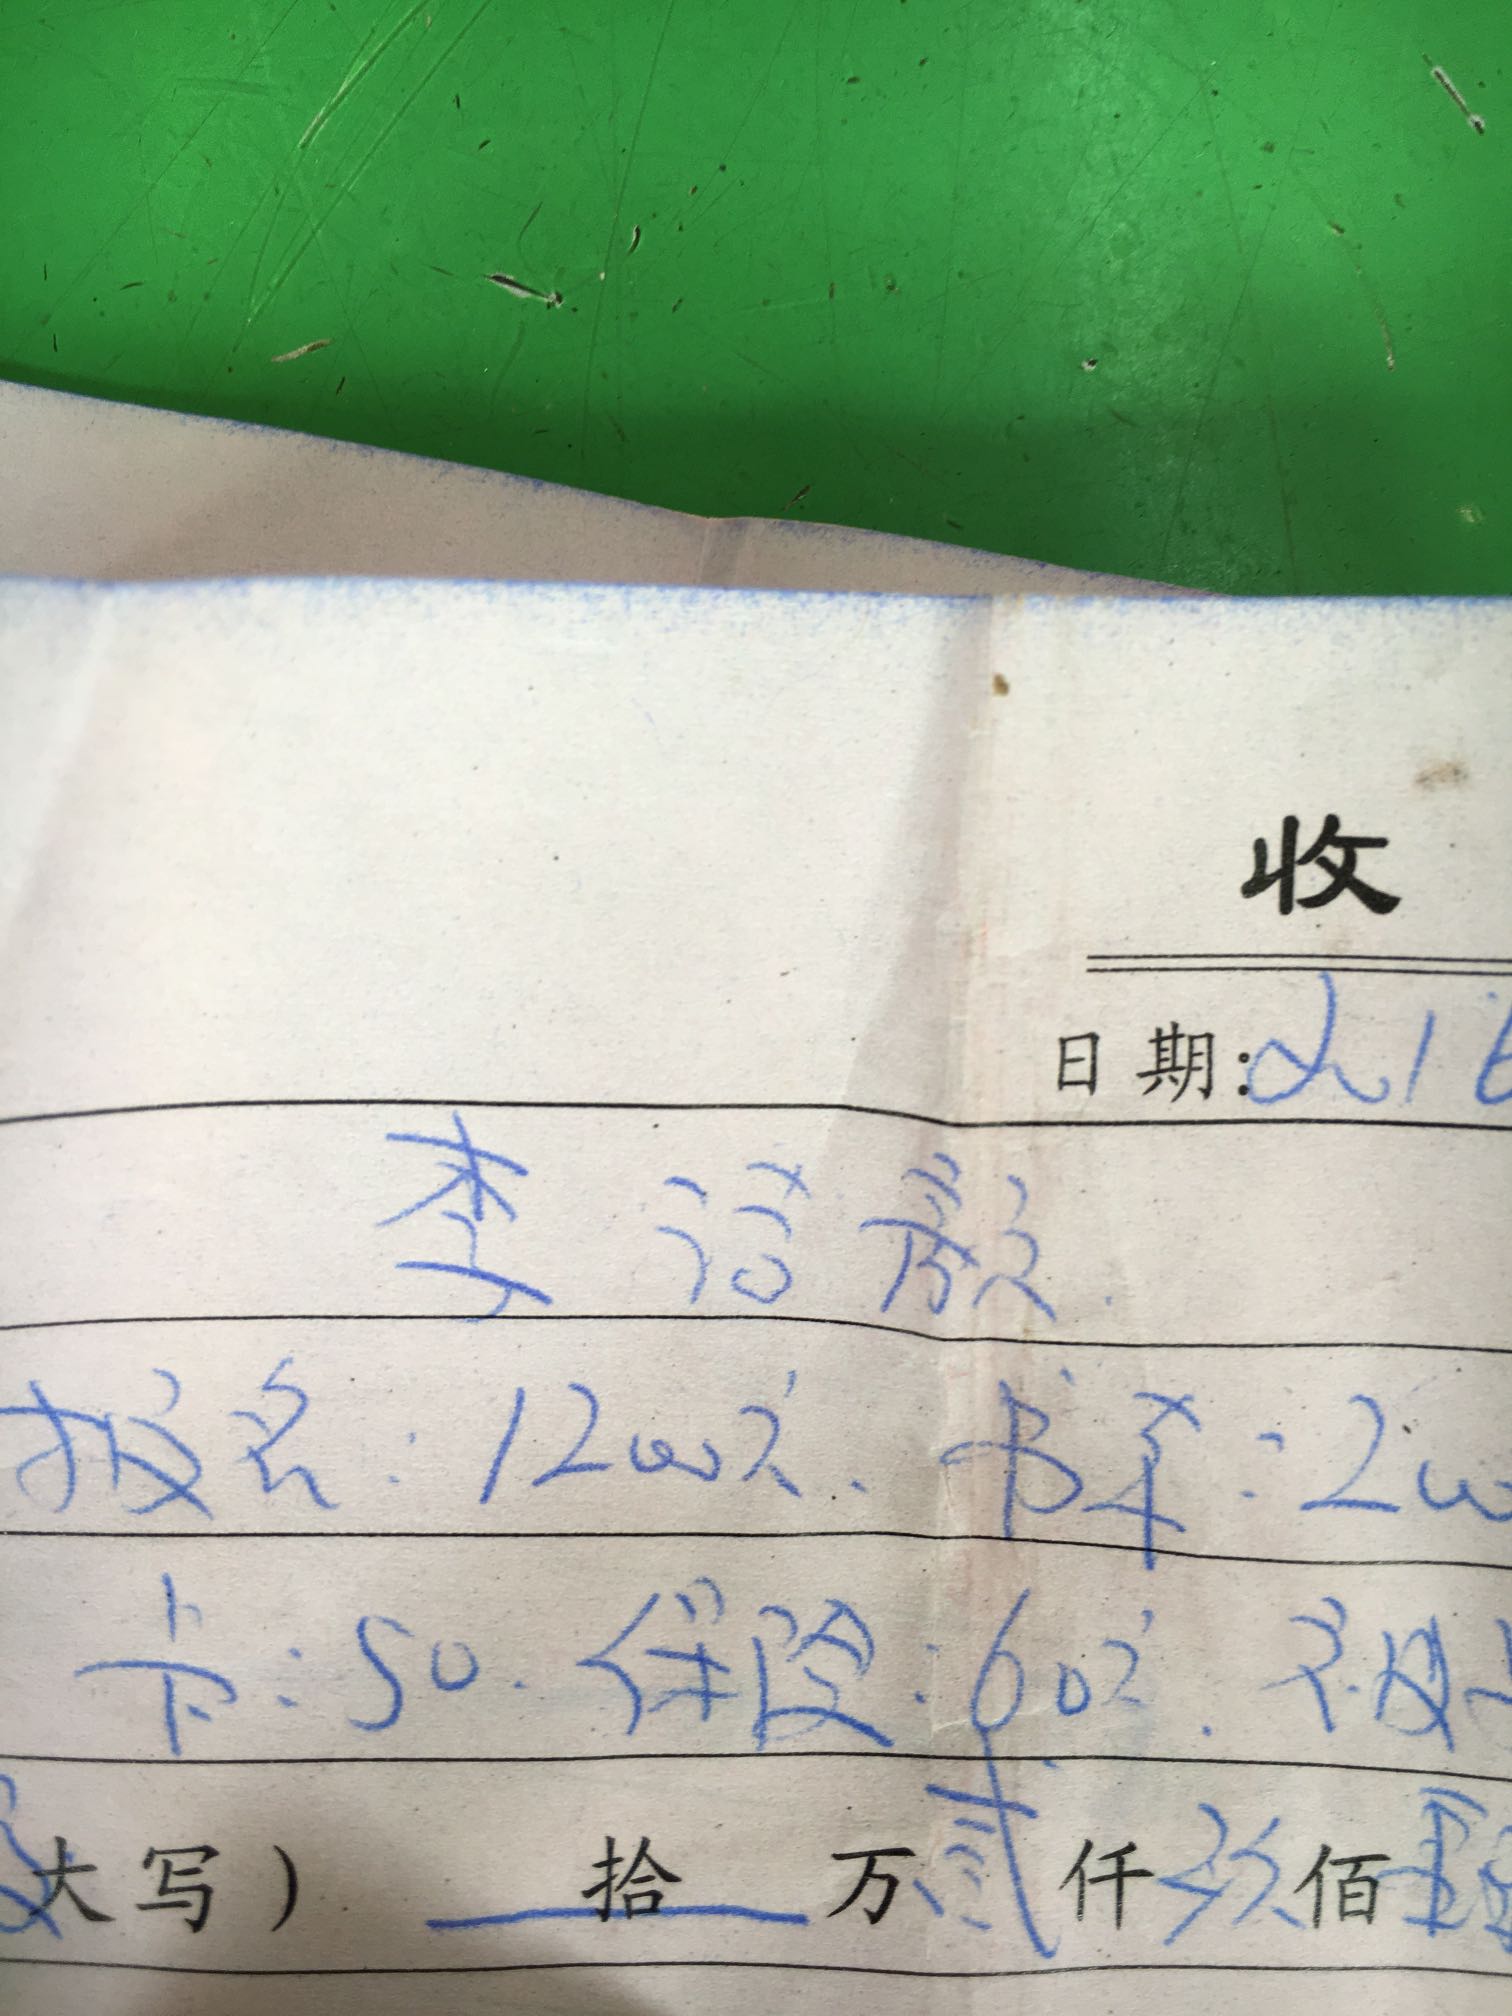 收
日期: 216
李洁
报名: 1200元. 书本: 200
卡: 50. 保险: 60元.
大写) 拾 万 贰 仟 玖 佰